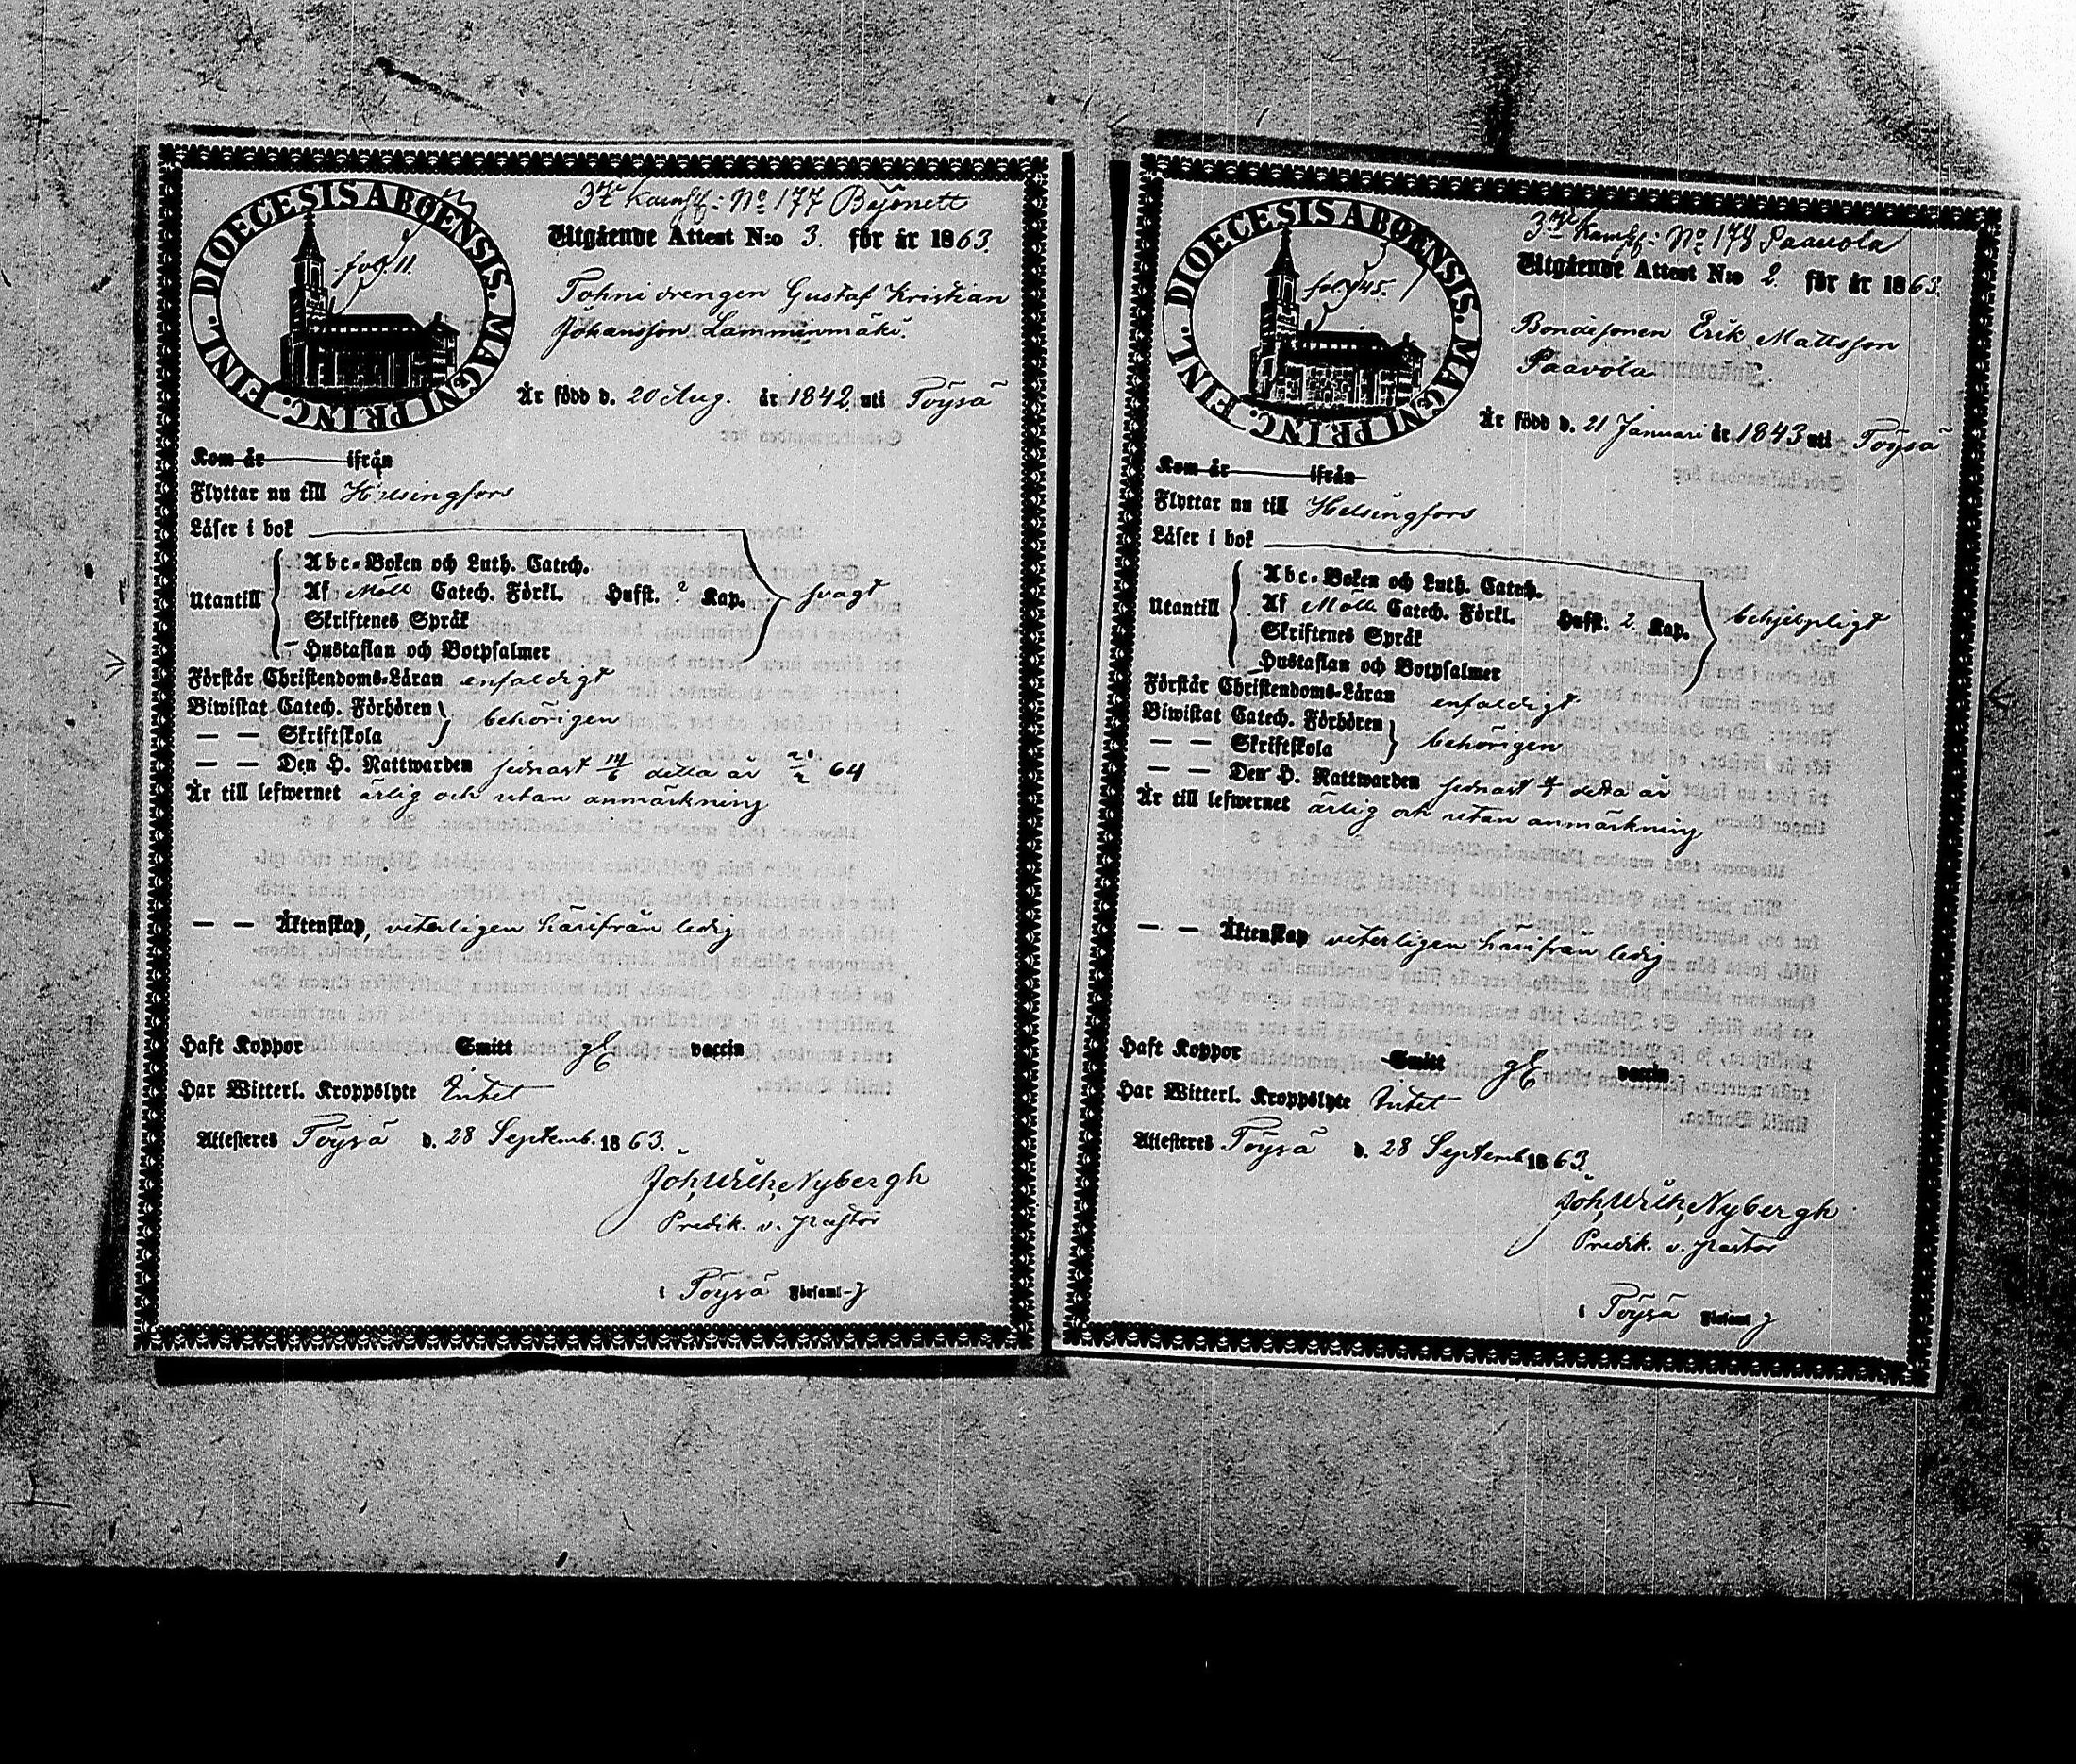 DIOECESIS ABOENSIS. MAGNI PRINC. FINL.
fol. 11.
No 177 Bajonett
Utgående Attest N:o 3. för år 1863.
Gustaf Kristian
Johansson Lamminmäki.
Är född d. 20 Aug. år 1842. uti Töysä
Kom år ifrån
Flyttar nu till Helsingfors
Läser i bok
Utantill
Abc-Boken och Luth. Catech.
Af Möll Catech. Förkl. Hufst. 2 Kap.
Skriftenes Språk
Hustaflan och Botpsalmer
svagt
Förstår Christendoms-Läran enfaldigt
Biwistat Catech. Förhören
— — Skriftskola
behörigen
— — Den H. Nattwarden sednast 14/6 detta år 64
Är till lefwernet ärlig och utan anmärkning
— — Äktenskap, veterligen härifrån ledig
Haft Koppor Smitt vaccin
Har Witterl. Kroppslyte Intet
Attesteres Töysä d. 28 Septemb. 1863.
Joh. Wilh. Nybergh
Predik. v. Pastor
i Töysä Församl-g
DIOECESIS ABOENSIS. MAGNI PRINC. FINL.
fol. 45.
No 178 Paavola
Utgående Attest N:o 2. för år 1863.
Bondesonen Erik Mattsson
Paavola
Är född d. 21 Januari år 1843 uti Töysä
Kom år ifrån
Flyttar nu till Helsingfors
Läser i bok
Utantill
Abc-Boken och Luth. Catech.
Af Möll. Catech. Förkl. Hufst. 2. Kap.
Skriftenes Språk
Hustaflan och Botpsalmer
behjelpligt
Förstår Christendoms-Läran enfaldigt
Biwistat Catech. Förhören
— — Skriftskola
behörigen
— — Den H. Nattwarden sednast detta år
Är till lefwernet ärlig och utan anmärkning
— — Äktenskap veterligen härifrån ledig
Haft Koppor Smitt vaccin
Har Witterl. Kroppslyte Intet
Attesteres Töysä d. 28 Septemb. 1863.
Joh. Wilh. Nybergh
Predik. v. Pastor
i Töysä Församl-g